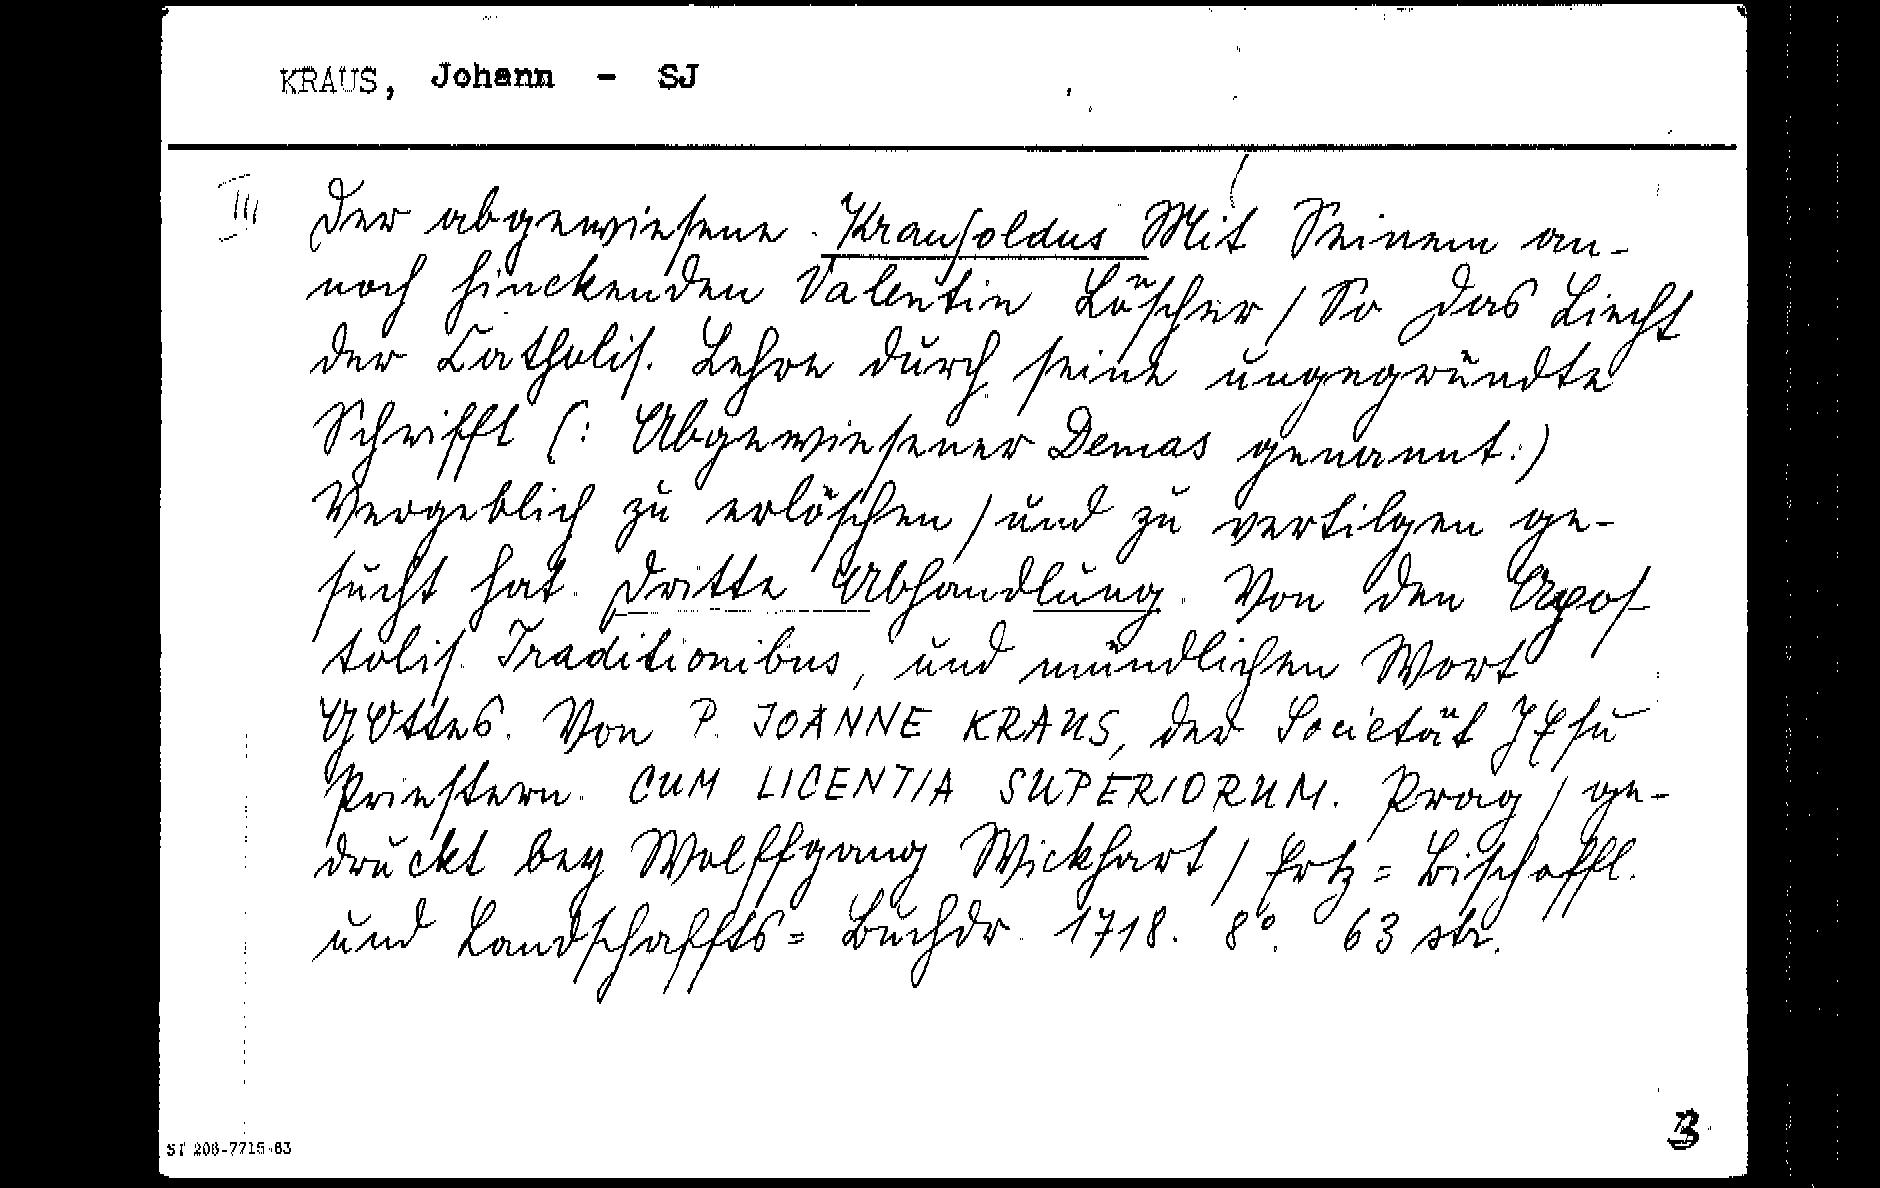 KRAUS, Johann - SJ
III Der abgewiesene Krausoldus Mit Seinem an-
noch hinckenden Valentin Löscher / So das Liecht
der Catholis. Lehre durch seine ungegründte
Schrifft (: Abgewiesener Demas genannt:)
Vergeblich zu erlöschen / und zu vertilgen ge-
sucht hat. Dritte Abhandlung. Von den Apos-
tolis. Traditionibus, und mündlichen Wort
GOttes. Von P. JOANNE KRAUS, der Societät JEsu
Priestern. CUM LICENTIA SUPERIORUM. Prag / ge-
druckt bey Wolffgang Wickhart / Ertz=Bischoffl.
und Landschaffts=Buchdr. 1718. 8°. 63 str.
3
ST 206-7715-63